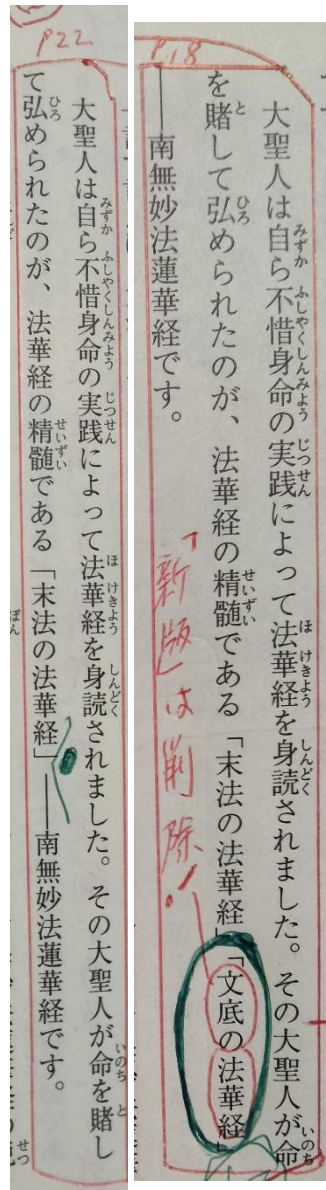 P18
大聖人は自ら不惜身命の実践によって法華経を身読されました。その大聖人が命
を賭して弘められたのが、法華経の精髄である「末法の法華経」「文底の法華経」
――南無妙法蓮華経です。
「新版」は削除!
P22
大聖人は自ら不惜身命の実践によって法華経を身読されました。その大聖人が命を賭し
て弘められたのが、法華経の精髄である「末法の法華経」――南無妙法蓮華経です。